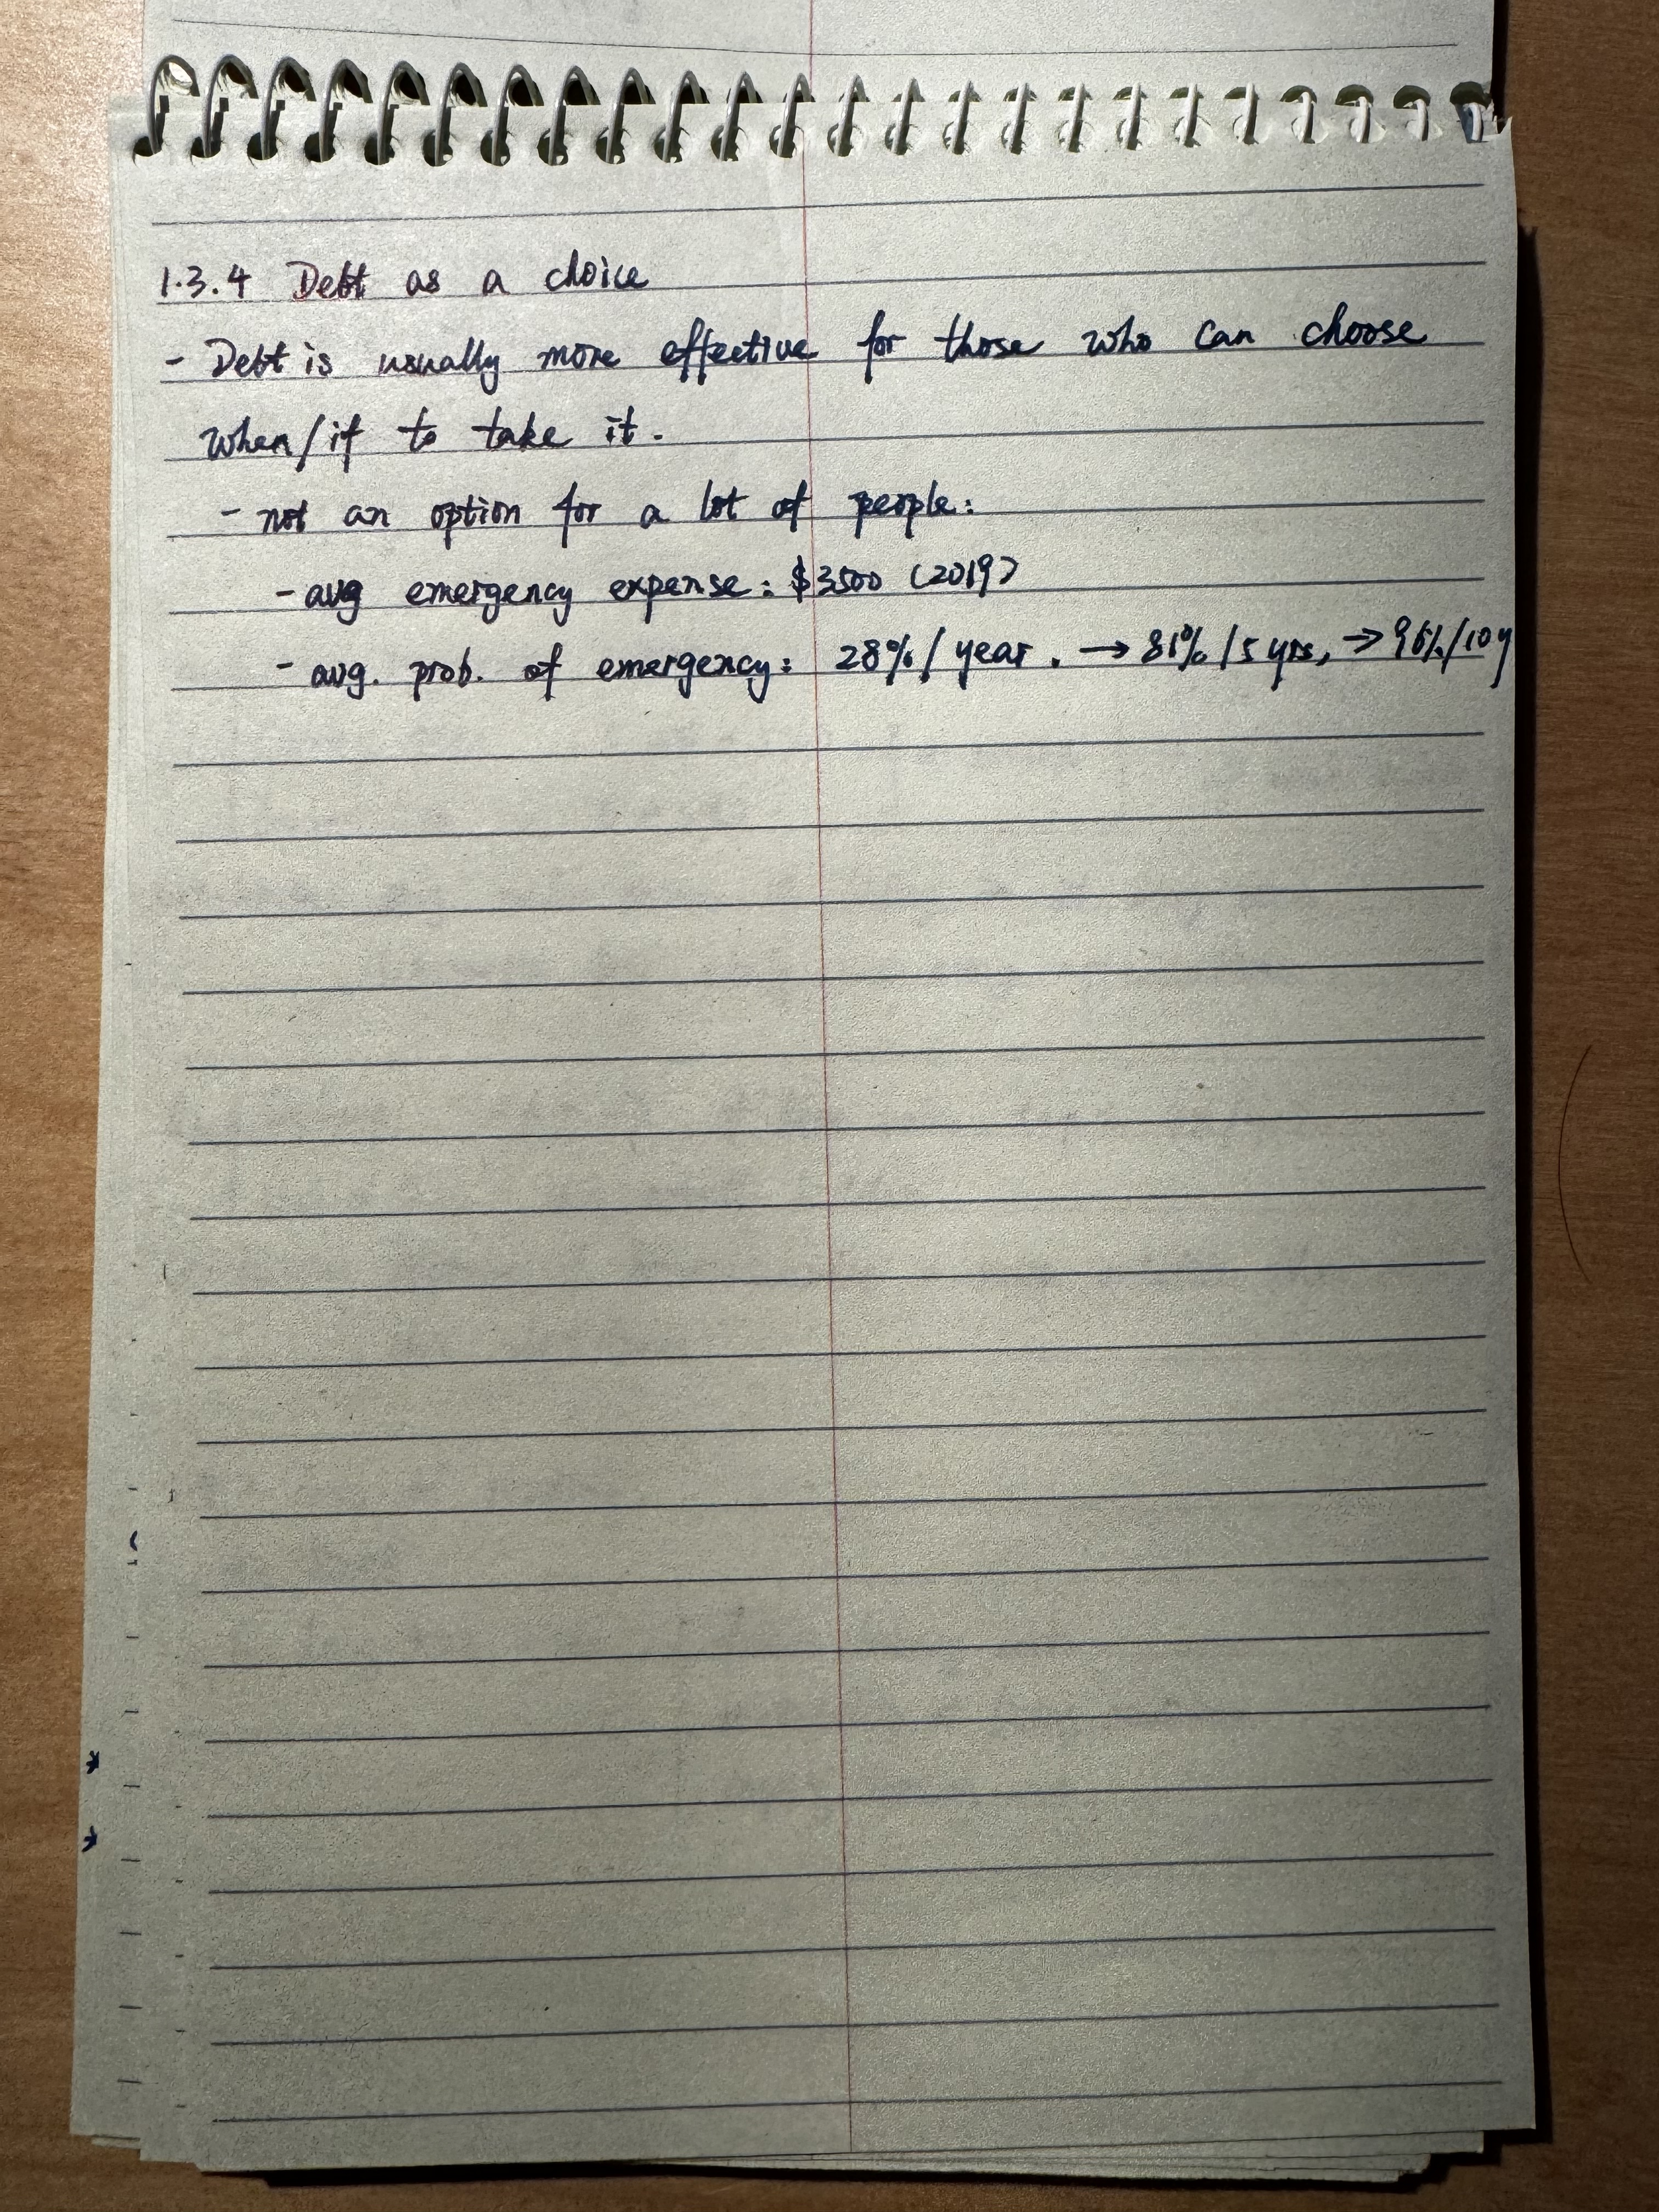 1.3.4 Debt as a choice
- Debt is usually more effective for those who can choose
when/if to take it.
- not an option for a lot of people:
- avg emergency expense: $3500 (2019)
- avg. prob. of emergency: 28%/year. → 81%/5 yrs, → 96%/10y